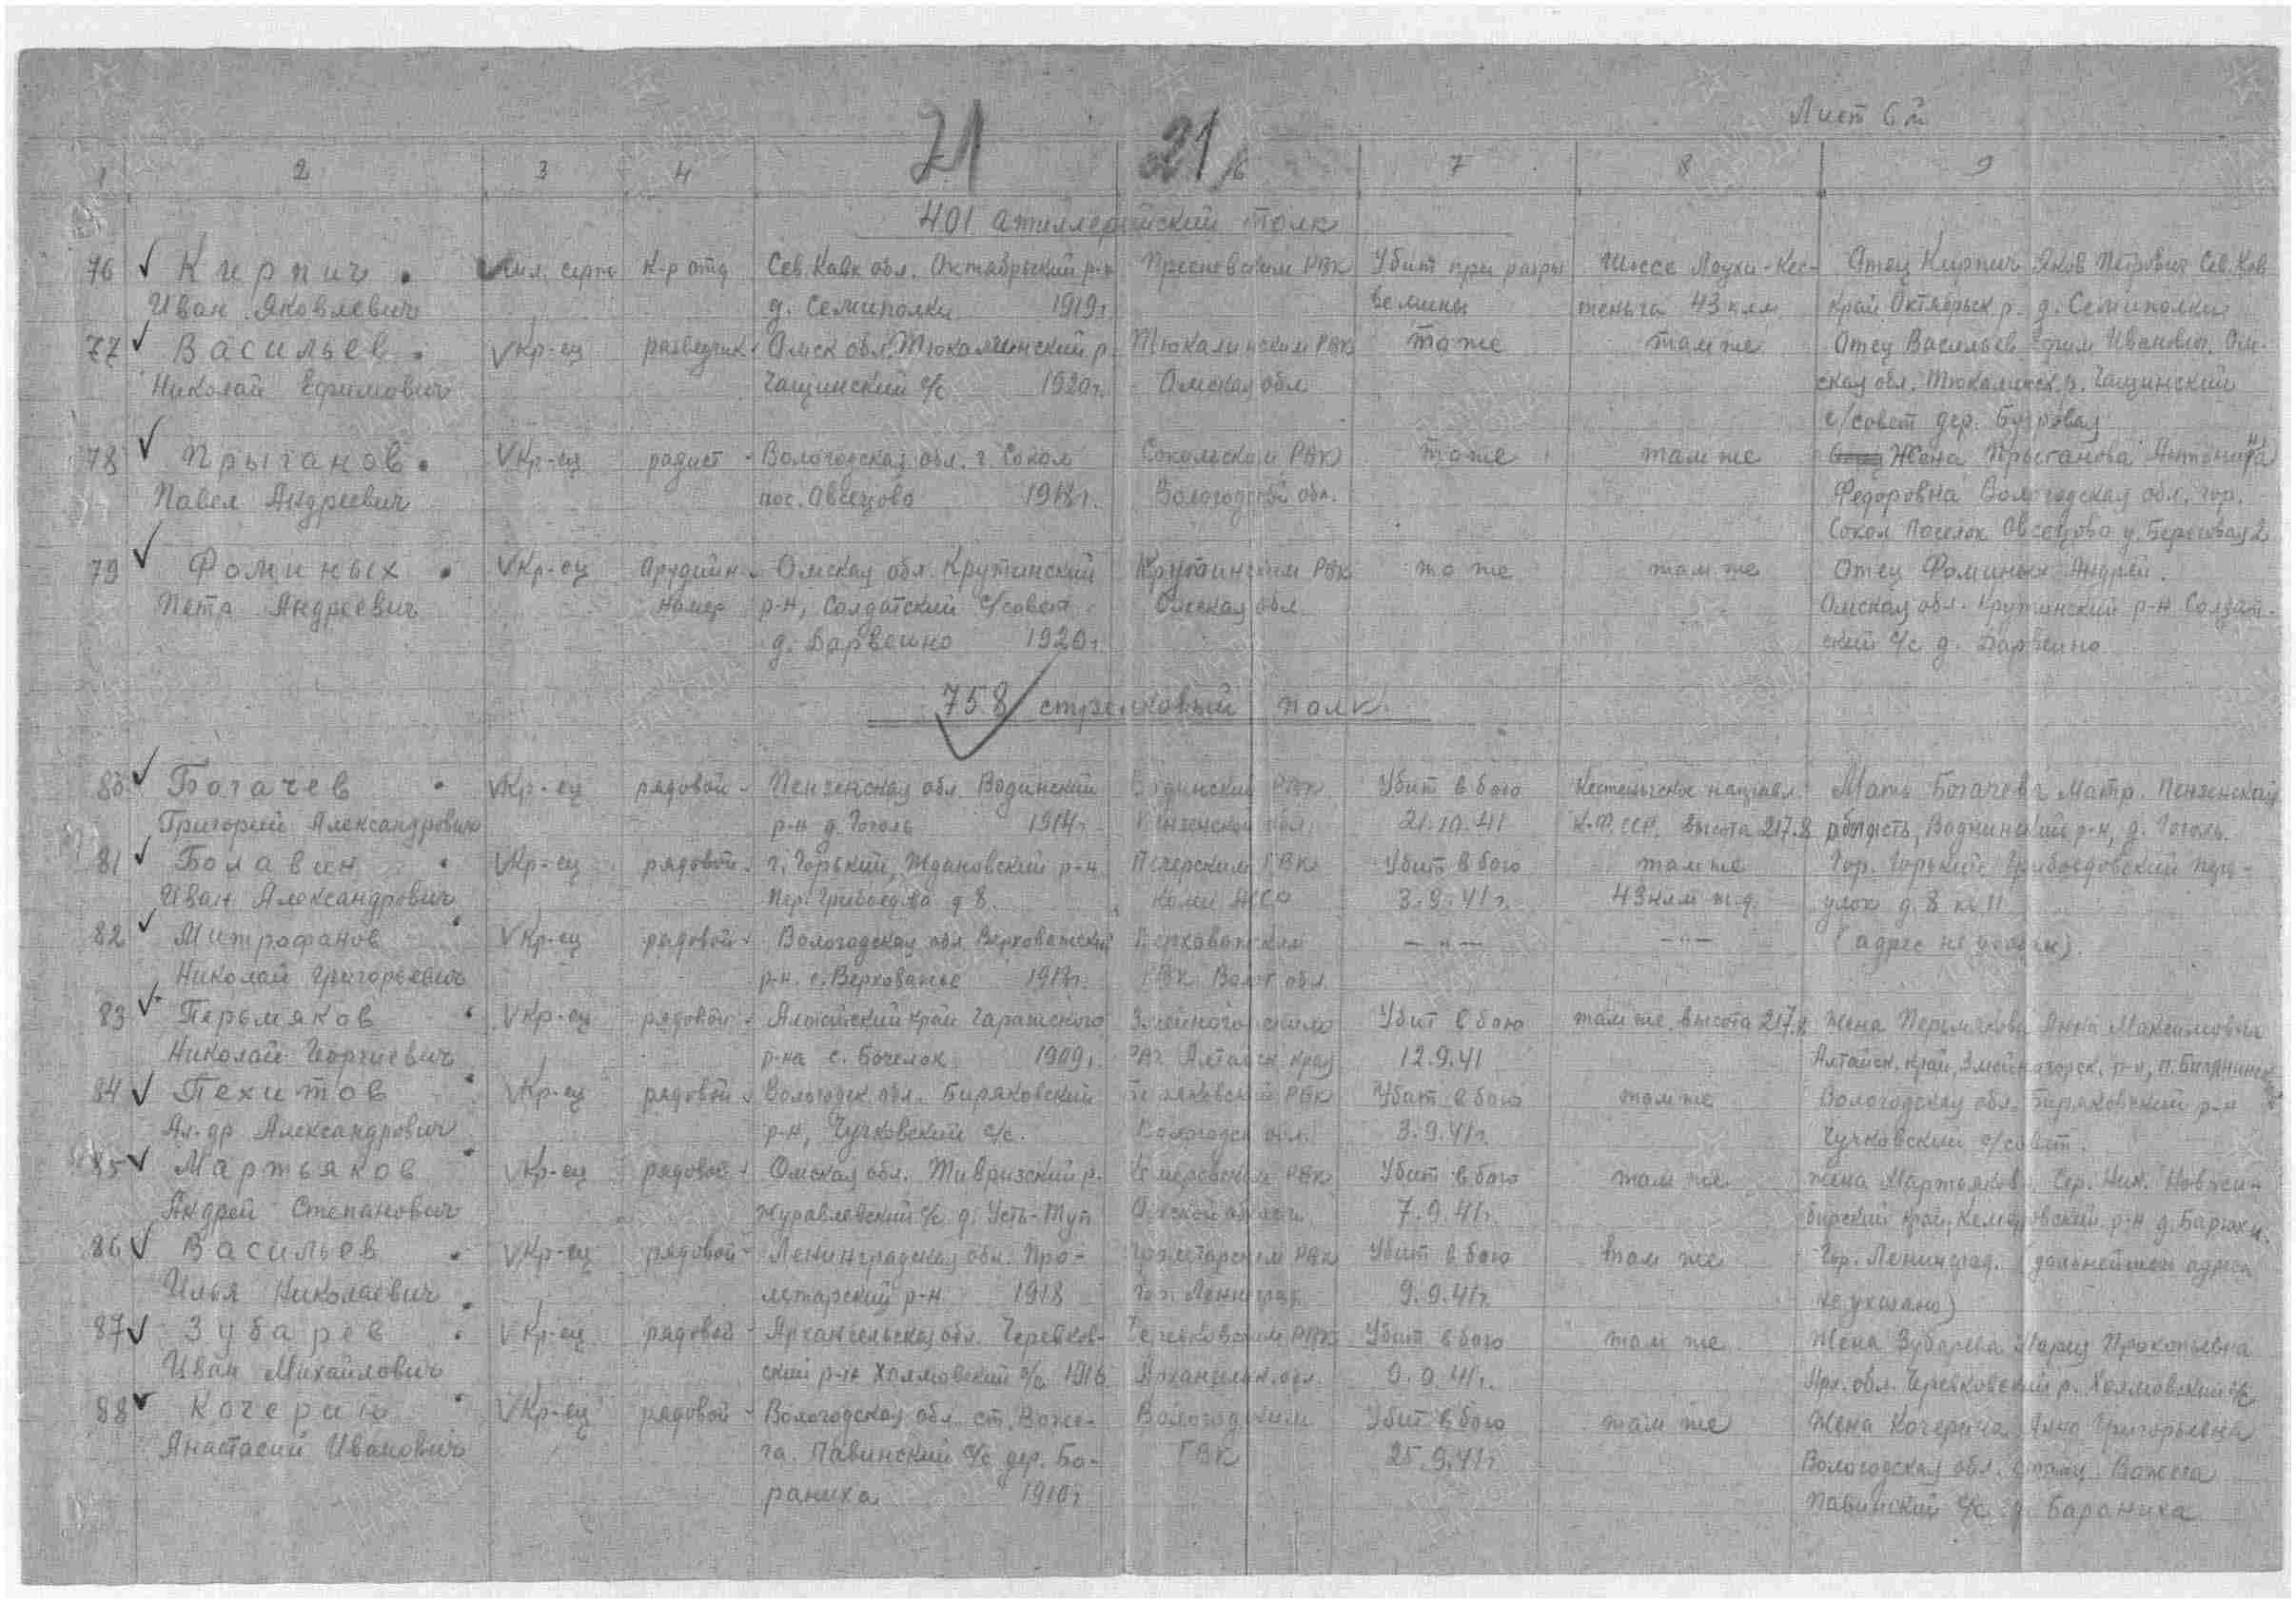 Лист 6й
21 21
1 2 3 4 6 7 8 9
401 атиллерийский полк
76 Кирпич мл. серж К-р отд Сев. Кавк обл. Октябрьский р-н Пресневским РВК Убит при разры Шоссе Лоухи-Кес- Отец Кирпич Яков Петрович Сев. Кав
Иван Яковлевич д. Семиполки 1919г. ве мины теньга 43 клм край Октябрьск р. д. Семиполки
77 Васильев Кр-ец разведчик Омск обл. Тюкалинский р. Тюкалинским РВК то же там же Отец Васильев Ефим Иванович. Ом-
Николай Ефимович Чащинский с/с 1920г. Омская обл ская обл. Тюкалинск. р. Чащинский
с/совет дер. Бугровая
78 Прыганов Кр-ец радист Вологодская обл. г. Сокол Сокольском РВК то же там же Жена Прыганова Антонина
Павел Андреевич пос. Овсецово 1918г. Вологодской обл. Федоровна Вологодская обл. гор.
Сокол Поселок Овсецово у. Береговая 2
79 Фоминых Кр-ец Орудийн. Омская обл. Крутинский Крутинским РВК то же там же Отец Фоминых Андрей.
Петр Андреевич номер р-н, Солдатский с/совет Омская обл. Омская обл. Крутинский р-н Солдат-
д. Барвеино 1920г. ский с/с д. Барвеино
758 стрелковый полк
80 Богачев Кр-ец рядовой Пензенская обл. Вадинский Вадинский РВК Убит в бою Кестеньгское направл. Мать Богачева Матр. Пензенская
Григорий Александрович р-н д. Гоголь 1914г. Пензенской обл. 21.10.41 К.Ф.ССР. высота 217.8 область, Вадинский р-н, д. Гоголь.
81 Болавин Кр-ец рядовой г. Горький, Ждановский р-н Печерским РВК Убит в бою там же Гор. Горький Грибоедовский пере-
Иван Александрович Пер. Грибоедова д 8. Коми АССР 3.9.41г. 43 клм ж.д. улок д. 8 кв 11
82 Митрофанов Кр-ец рядовой Вологодская обл. Верховажский Верховажским — " — — " — (адрес не
Николай Григорьевич р-н. с. Верховажье РВК Волог обл.
83 Пермяков Кр-ец рядовой Алтайский край Змейногорским Убит в бою там же высота 217.8 Жена Пермякова Анна Максимовна
Николай Георгиевич р-на с. Бочелок 1909г. РВК Алтайск край 12.9.41 Алтайск. край, Змейногорск. р-н,
84 Пехитов Кр-ец рядовой Вологодск. обл. Биряковский Биряковский РВК Убит в бою там же Вологодская обл. Биряковский р-н
Ал-др Александрович р-н, Чучковский с/с. Вологодск обл. 3.9.41г. Чучковский с/совет.
85 Мартьяков Кр-ец рядовой Омская обл. Тивризский р. Кемеровским РВК Убит в бою там же Жена Мартьякова Сер. Ник. Новоси-
Андрей Степанович Журавлевский с/с д. Усть-Туп 7.9.41г. бирский край, Кемеровский р-н д. Барюхи.
86 Васильев Кр-ец рядовой Ленинградская обл. Про- Пролетарским РВК Убит в бою там же Гор. Ленинград. (дальнейшего адреса
Илья Николаевич летарский р-н 1918 гор. Ленинград 9.9.41г. не указано)
87 Зубарев Кр-ец рядовой Архангельская обл. Черевков- Черевковским РВК Убит в бою там же Жена Зубарева Мария Прокопьевна
Иван Михайлович ский р-н Холмовский с/с 1916 Архангельск. обл. 9.9.41г. Арх. обл. Черевковский р. Холмовский с/с
88 Кочерин Кр-ец рядовой Вологодская обл. ст. Воже- Вологодским Убит в бою там же Жена Кочерина Анна Григорьевна
Анастасий Иванович га. Павинский с/с дер. Ба- ГВК 25.9.41г. Вологодская обл. станц. Вожега
раниха. 1910г. Павинский с/с д. Бараниха